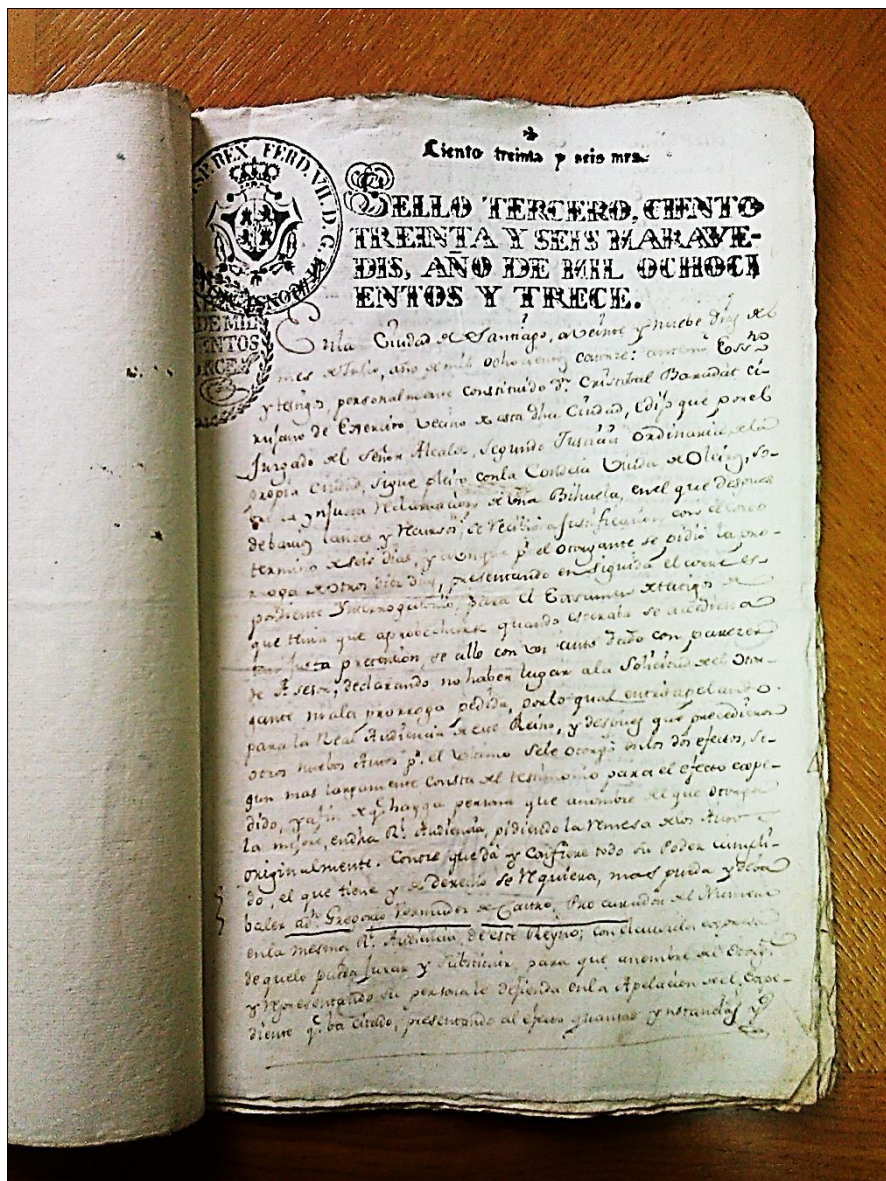 Ciento treinta y seis mrs.
SELLO TERCERO, CIENTO
TREINTA Y SEIS MARAVE-
DIS, AÑO DE MIL OCHOCI
ENTOS Y TRECE.
REX FERD. VII. D. G.
DE MIL
ENTOS
En la Ciudad de Santiago, a veinte y nuebe dias del
mes de Julio, año de mil ochocientos catorze: antemi Essno
y testigos, personalmente constituido Dn. Cristobal Barudat ci-
rujano de Exercito Vecino de esta dha Ciudad, Edijo que por el
Juzgado del Señor Alcalde, Segundo Justicia Ordinaria de la
propia Ciudad, sigue pleito con la Condesa Viuda de so-
bre la ynjusta reclamacion de una Bihuela, en el que despues
de barios lances y recursos, se recibio a Justificacion con el corto
termino de seis dias, y aunque pr. el Otorgante se pidió la pro-
rroga de otros diez dias, presentando en seguida el corres-
pondiente Ynterrogatorio, para el Examen de testigos de
que tenia que aprobecharse quando esperaba se accediera
justa pretension, se allo con un auto dado con parezer
de Asesor, declarando no haber lugar a la Solicitud del Otor-
gante ni a la prorroga pedida, por lo qual apelando
para la Real Audiencia de este Reino, y despues que precedieron
otros nuebos Autos pr. el Ultimo sele otorgó en los dos efectos, se-
gun mas largamente consta del testimonio para el efecto expe-
dido, y a fin de q. haya persona que a nombre del que otorga
la mejore, en dha Rl. Audiencia, pidiendo la remesa de los Autos
originalmente. Otorga que da y confiere todo su Poder cumpli-
do, el que tiene y de derecho se requiera, mas pueda y deba
baler a Dn. Gregorio Bermudez de Castro, Procurador del Numero
en la mesma Rl. Audiencia, de este Reyno; con clausula expresa
de que lo pueda Jurar y substituir, para que a nombre del Otorgte.
y representando su persona le defienda en la Apelacion del Expe-
diente q. ba citado, presentando al efecto quantas ynstancias y